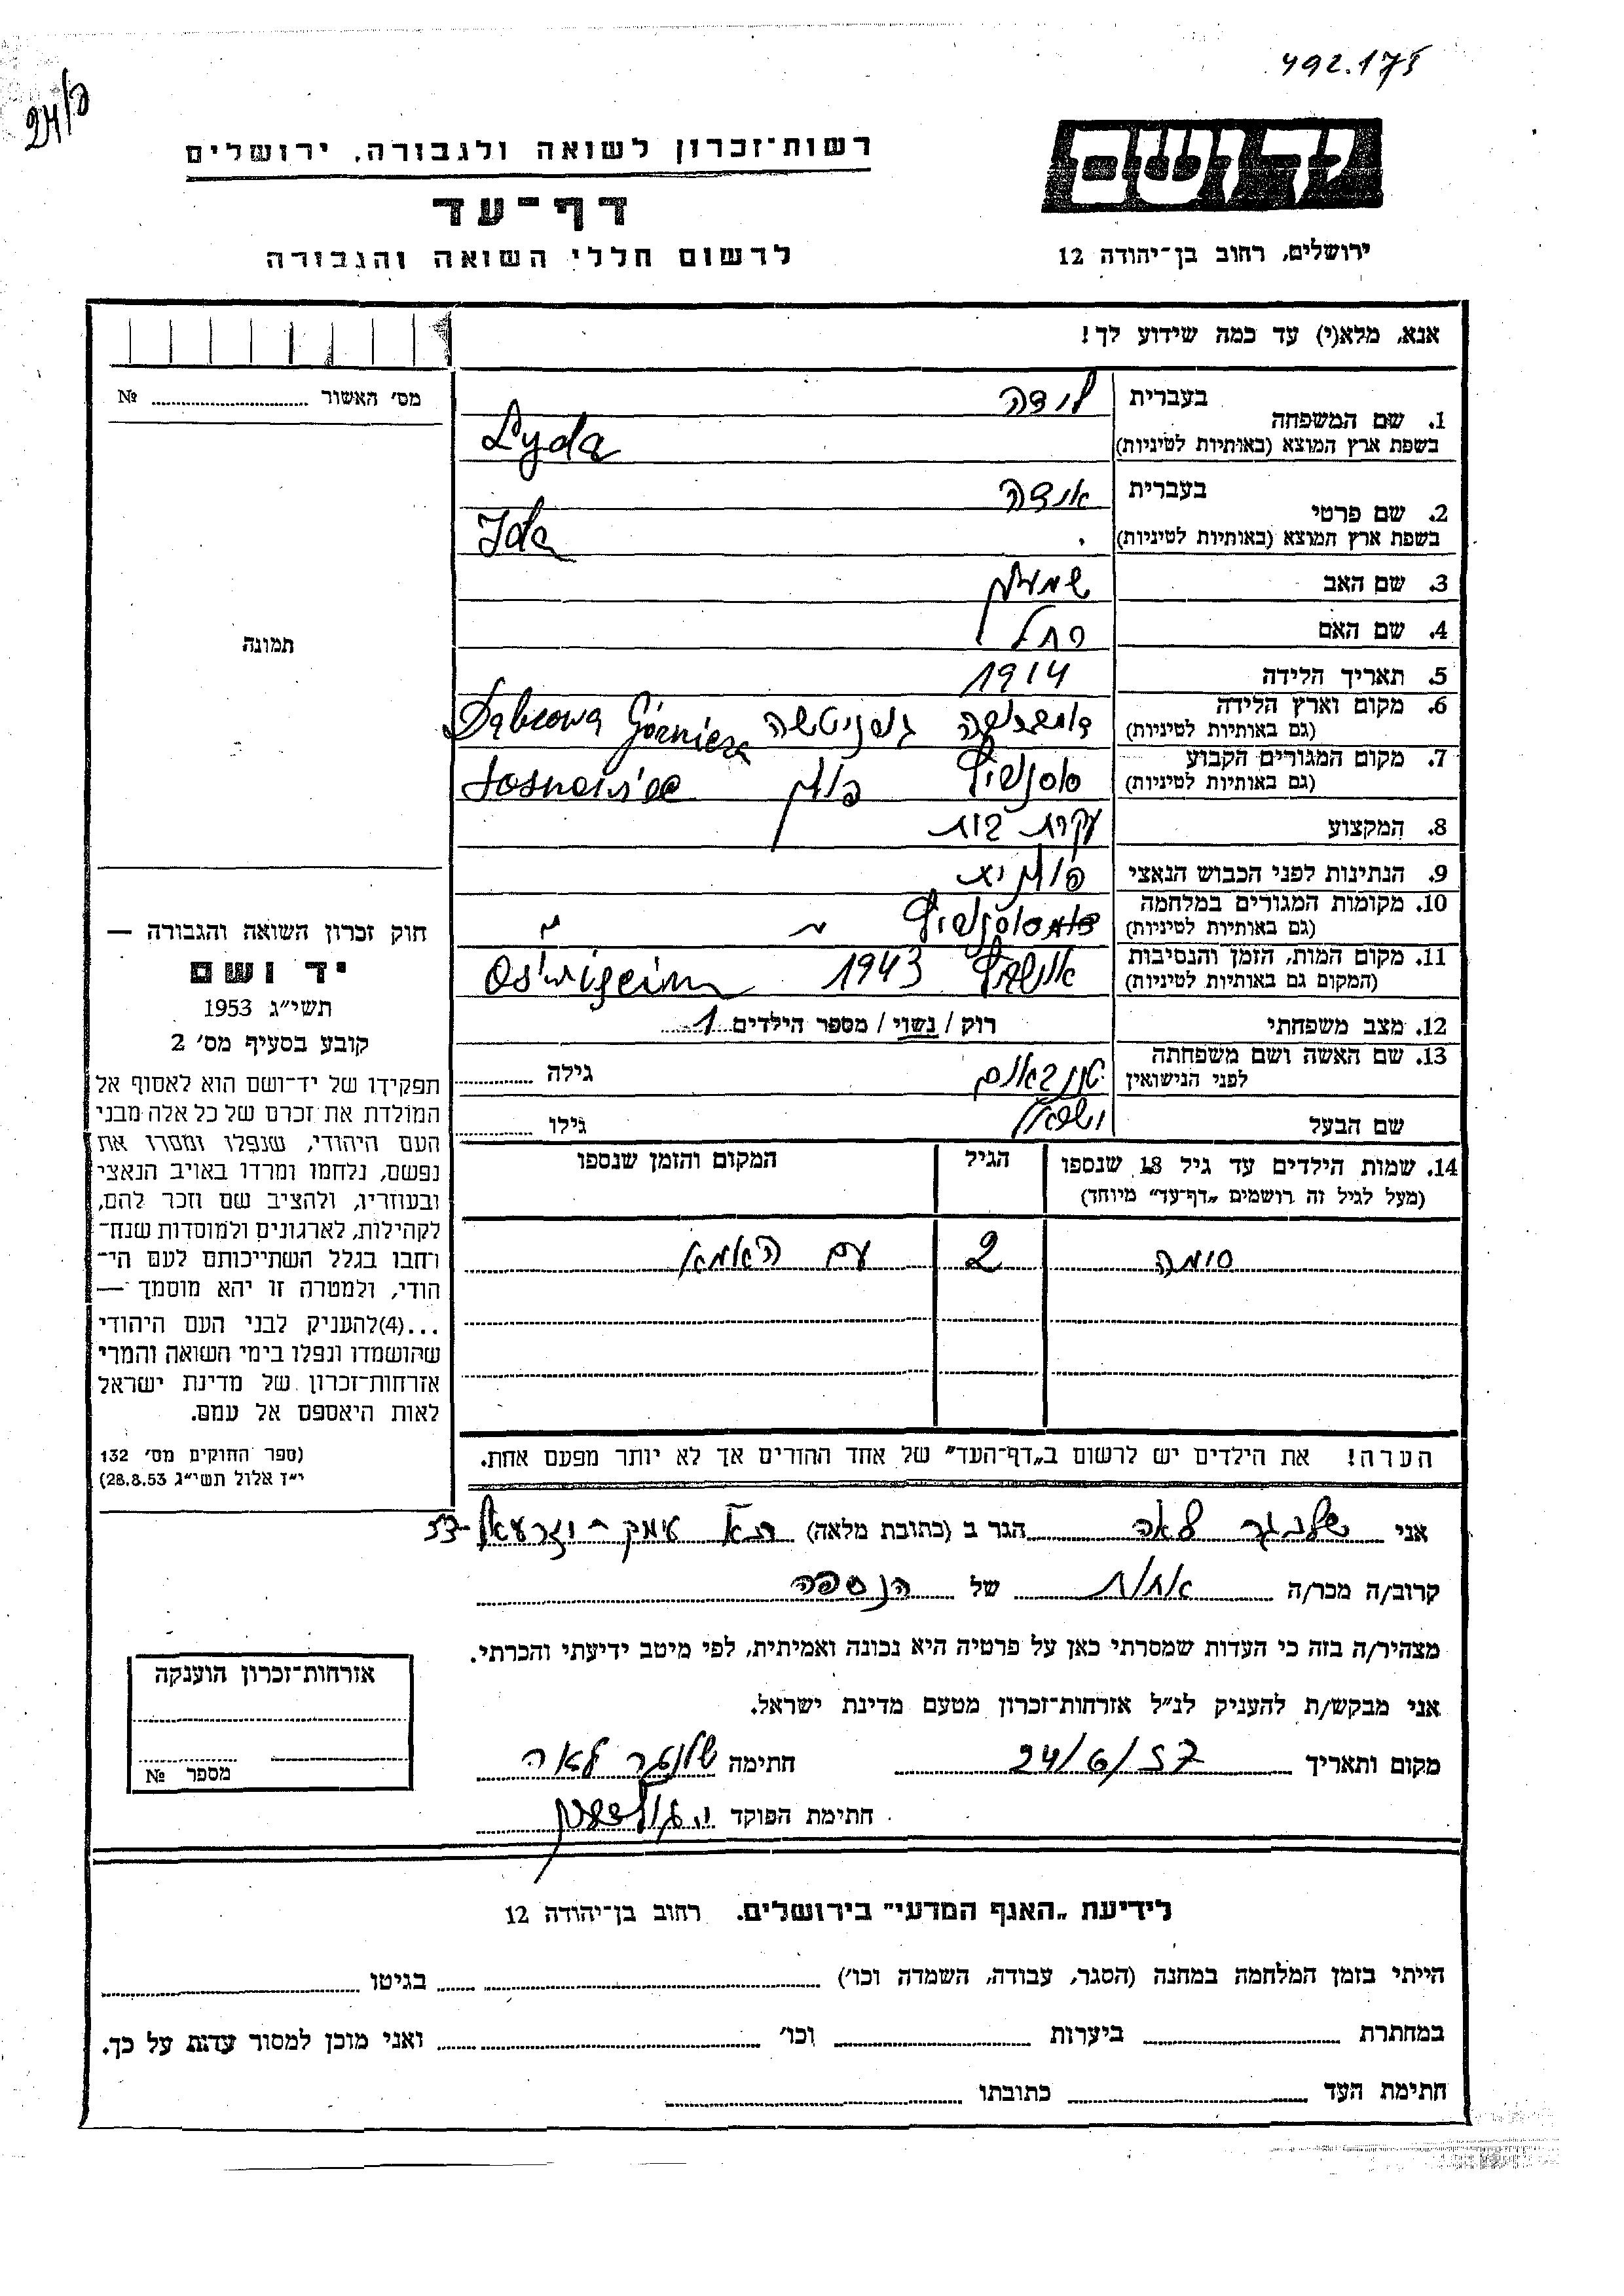 492.175
24/ק
רשות־זכרון לשואה ולגבורה, ירושלים
דף־עד
לרשום חללי השואה והגבורה
יד ושם
ירושלים, רחוב בן־יהודה 12
אנא, מלא(י) עד כמה שידוע לך!
מס׳ האשור № 
1. שם המשפחה
בעברית לידה
בשפת ארץ המוצא (באותיות לטיניות) Lyda
2. שם פרטי
בעברית אידה
בשפת ארץ המוצא (באותיות לטיניות) Ida
3. שם האב שמעון
4. שם האם רחל
5. תאריך הלידה 1914
6. מקום וארץ הלידה
(גם באותיות לטיניות) דומברובה גורניטשה Dąbrowa Górnicza
7. מקום המגורים הקבוע
(גם באותיות לטיניות) סוסנוביץ פולין Sosnowiec
8. המקצוע עקרת בית
9. הנתינות לפני הכבוש הנאצי פולניה
10. מקומות המגורים במלחמה
(גם באותיות לטיניות) סוסנוביץ
11. מקום המות, הזמן והנסיבות
(המקום גם באותיות לטיניות) אושביץ 1943 Oświęcim
12. מצב משפחתי רוק / נשוי / מספר הילדים 1
13. שם האשה ושם משפחתה
לפני הנישואין גילה
שם הבעל ישראל גילו
14. שמות הילדים עד גיל 18 שנספו הגיל המקום והזמן שנספו
(מעל לגיל זה רושמים „דף־עד״ מיוחד)
סימה 2 עם האמא
הערה! את הילדים יש לרשום ב„דף־העד״ של אחד ההורים אך לא יותר מפעם אחת.
תמונה
חוק זכרון השואה והגבורה —
יד ושם
תשי״ג 1953
קובע בסעיף מס׳ 2
תפקידו של יד־ושם הוא לאסוף אל
המולדת את זכרם של כל אלה מבני
העם היהודי, שנפלו ומסרו את
נפשם, נלחמו ומרדו באויב הנאצי
ובעוזריו, ולהציב שם וזכר להם,
לקהילות, לארגונים ולמוסדות שנח־
רחבו בגלל השתייכותם לעם הי־
הודי, ולמטרה זו יהא מוסמך —
...(4)להעניק לבני העם היהודי
שהושמדו ונפלו בימי השואה והמרי
אזרחות־זכרון של מדינת ישראל
לאות היאספם אל עמם.
(ספר החוקים מס׳ 132
י״ד אלול תשי״ג 28.8.53)
אני לאה הגר ב (כתובת מלאה) עמק־יזרעאל
קרוב/ה מכר/ה אחות של הנספה
מצהיר/ה בזה כי העדות שמסרתי כאן על פרטיה היא נכונה ואמיתית, לפי מיטב ידיעתי והכרתי.
אני מבקש/ת להעניק לנ״ל אזרחות־זכרון מטעם מדינת ישראל.
מקום ותאריך 24/6/57 חתימה לאה
חתימת הפוקד
אזרחות־זכרון הוענקה
מספר №
לידיעת „האגף המדעי״ בירושלים. רחוב בן־יהודה 12
הייתי בזמן המלחמה במחנה (הסגר, עבודה, השמדה וכו׳) בגיטו
במחתרת ביערות וכו׳ ואני מוכן למסור עדות על כך.
חתימת העד כתובתו